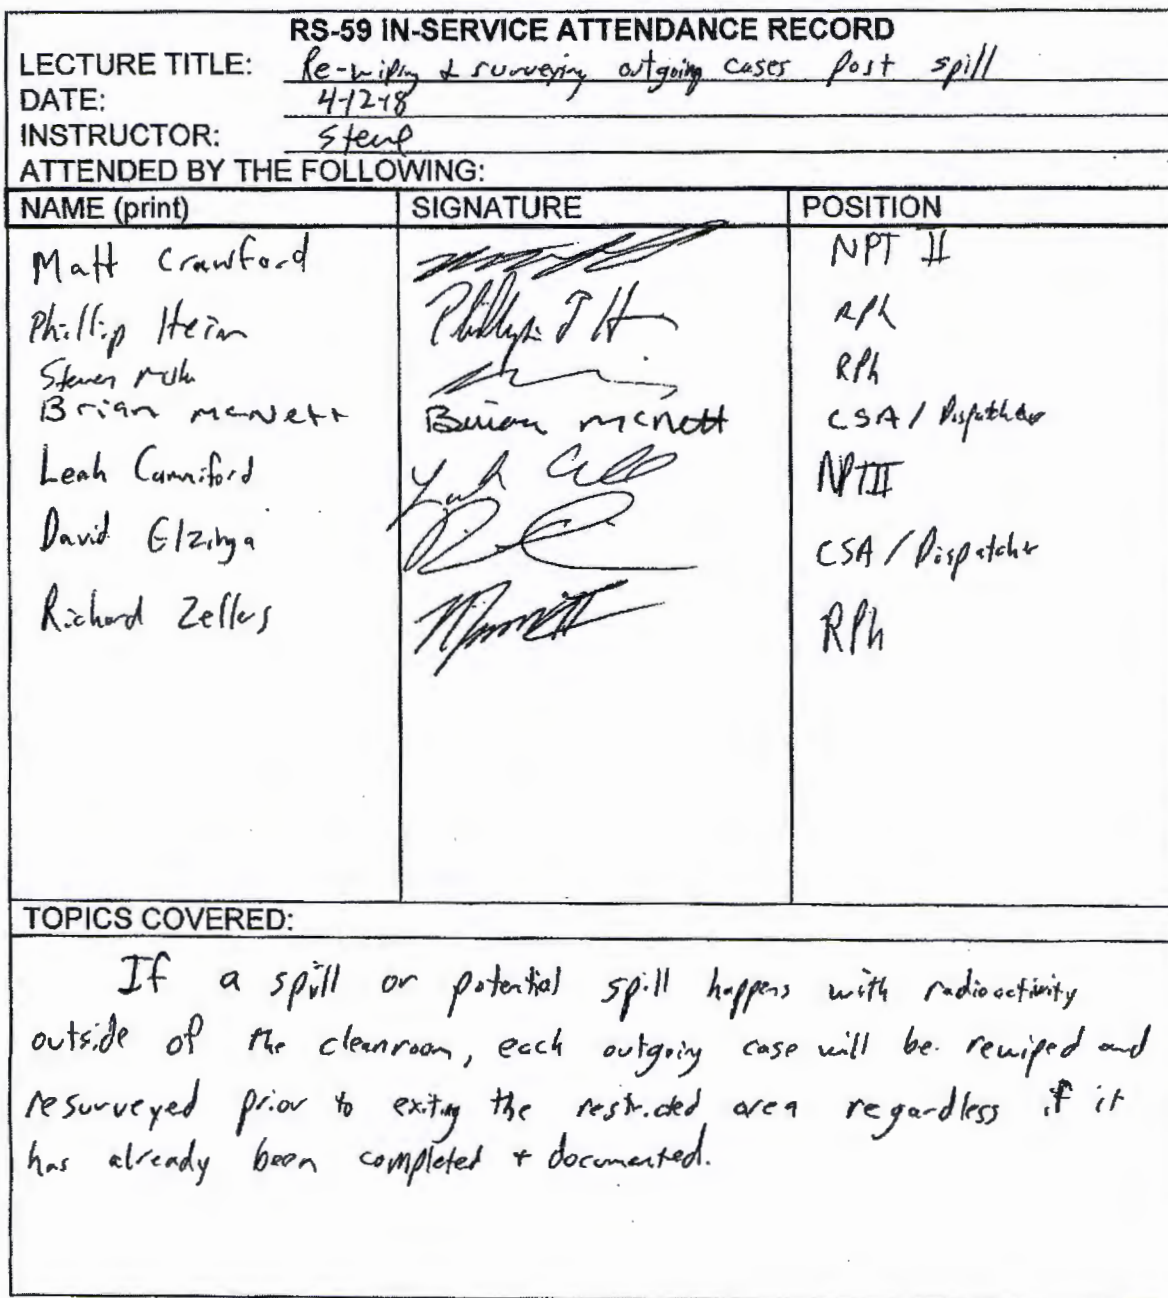 RS-59 IN-SERVICE ATTENDANCE RECORD
LECTURE TITLE: Re-wiping & surveying outgoing cases post spill
DATE: 4-12-18
INSTRUCTOR: Steve
ATTENDED BY THE FOLLOWING:
NAME (print) SIGNATURE POSITION
Matt Crawford NPT II
Phillip Heim Phillip J H RPh
Steven RPh
Brian McNett Brian McNett CSA / Dispatcher
Leah Cunniford Leah NPTII
David Elzinga CSA / Dispatcher
Richard Zellers RPh
TOPICS COVERED:
If a spill or potential spill happens with radioactivity
outside of the cleanroom, each outgoing case will be rewiped and
resurveyed prior to exiting the restricted area regardless if it
has already been completed + documented.